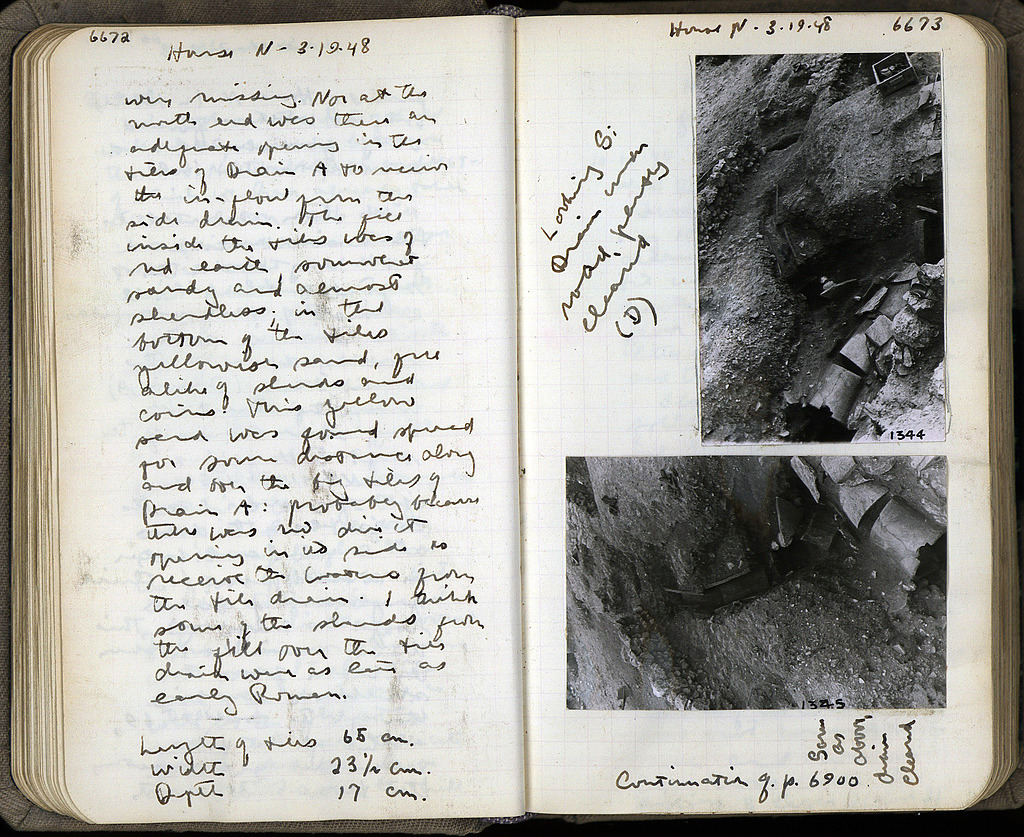 6672
House N - 3.19.48
were missing. Nor at the
north end was there an
adequate opening in the
tiles of Drain A to receive
the in-flow from the
side drain. The fill
inside the tiles was of
red earth, somewhat
sandy and almost
sherdless; in the
bottom of the tiles
yellowish sand, free
alike of sherds and
coins. This yellow
sand was found spread
for some distance along
and over the big tiles of
Drain A: probably because
there was no direct
opening in its side to
receive the waters from
the tile drain. I think
some of the sherds from
the fill over the tile
drain were as late as
early Roman.
Length of tiles 65 cm.
Width 23½ cm.
Depth 17 cm.
House N - 3.19.48 6673
Looking S:
Drain under
road, partly
cleared
(D)
1344
1345
Same
as
above,
drain
cleared
Continuation of p. 6900.